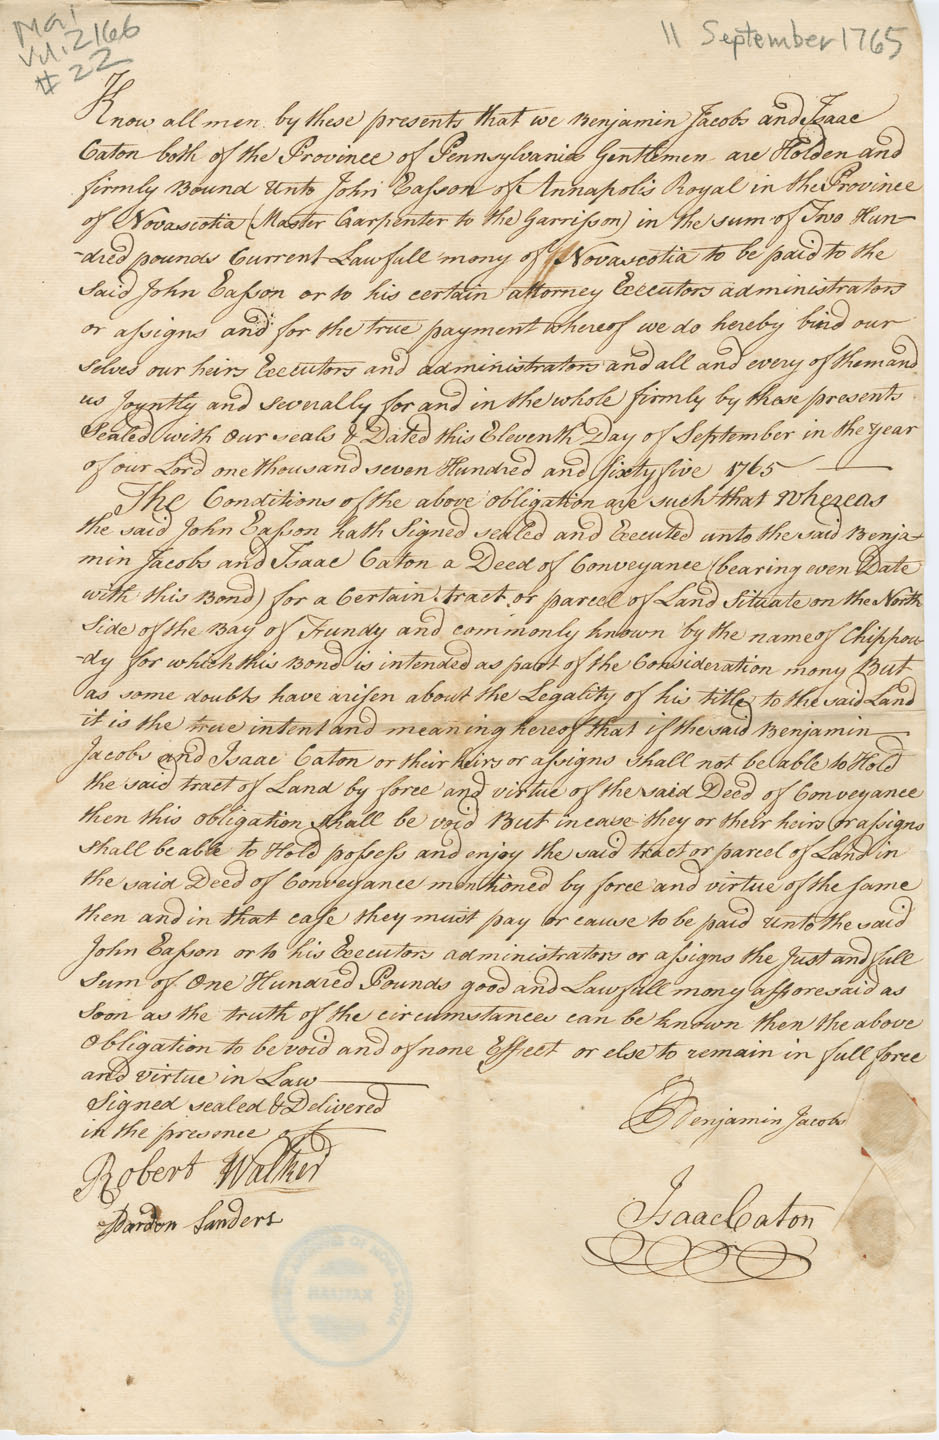 MG1
Vol. 2166
# 22
11 September 1765
Know all men by these presents that we Benjamin Jacobs and Isaac
Caton both of the Province of Pennsylvania Gentlemen are Holden and
firmly Bound Unto John Easson of Annapolis Royal in the Province
of Novascotia (Master Carpenter to the Garrisson) in the sum of Two Hun-
-dred pounds Current Lawfull mony of Novascotia to be paid to the
Said John Easson or to his certain attorney Executors administrators
or assigns and for the true payment whereof we do hereby bind our
selves our heirs Executors and administrators and all and every of them and
us Joyntly and severally for and in the whole firmly by these presents
Sealed with our seals & Dated this Eleventh Day of September in the year
of our Lord one thousand seven Hundred and sixty five 1765
The Conditions of the above obligation are such that whereas
the said John Easson hath Signed sealed and Executed unto the said Benja-
min Jacobs and Isaac Caton a Deed of Conveyance (bearing even Date
with this Bond) for a Certain tract or parcel of Land Situate on the North
Side of the Bay of Fundy and commonly known by the name of Chippou-
-dy for which this Bond is intended as part of the Consideration mony But
as some doubts have arisen about the Legality of his title to the said Land
it is the true intent and meaning hereof that if the said Benjamin
Jacobs and Isaac Caton or their heirs or assigns shall not be able to Hold
the said tract of Land by force and virtue of the said Deed of Conveyance
then this obligation shall be void But in case they or their heirs or assigns
shall be able to Hold possess and enjoy the said tract or parcel of Land in
the said Deed of Conveyance mentioned by force and virtue of the same
then and in that case they must pay or cause to be paid unto the said
John Easson or to his Executors administrators or assigns the Just and full
Sum of One Hundred Pounds good and Lawfull mony afforesaid as
Soon as the truth of the circumstances can be known then the above
Obligation to be void and of none Effect or else to remain in full force
and virtue in Law
Signed sealed & Delivered
in the presence of
Benjamin Jacobs
Robert Walker
Pardon Sanders
Isaac Caton
PUBLIC ARCHIVES OF NOVA SCOTIA
HALIFAX